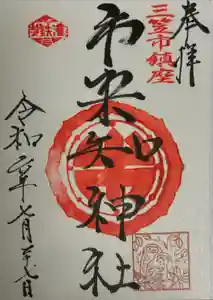 奉拝
三笠市鎮座
市来知神社
令和二年七月二十九日